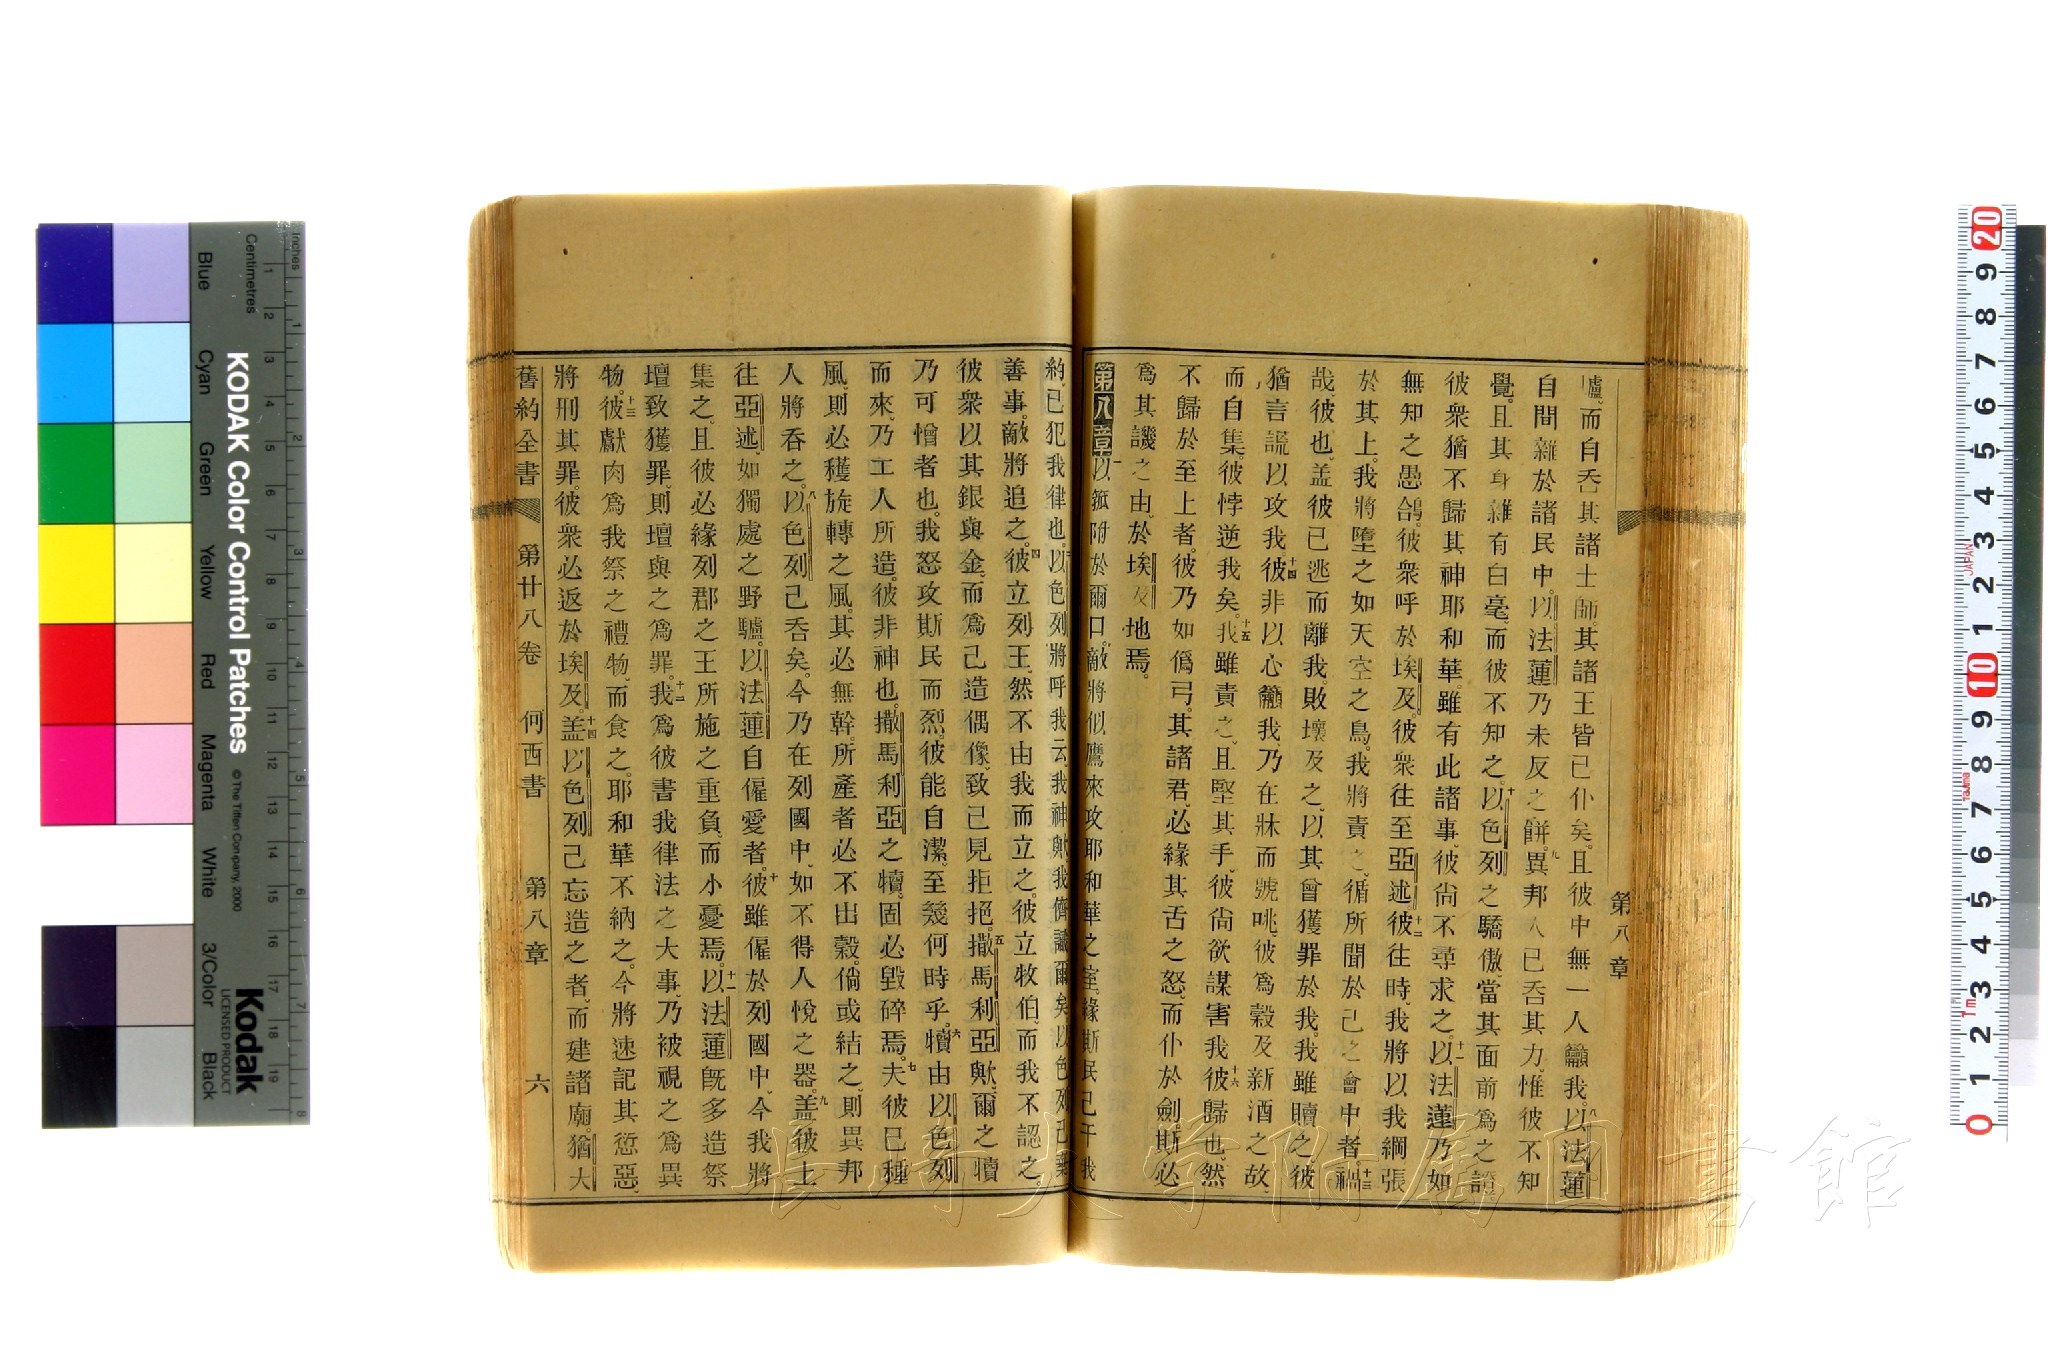 第八章
爐、而自吞其諸士師。其諸王皆已仆矣。且彼中無一人籲我。八以法蓮
自間雜於諸民中。以法蓮乃未反之餅。九異邦人已吞其力、惟彼不知
覺。且其身雜有白毫、而彼不知之。十以色列之驕傲、當其面前爲之證。
彼衆猶不歸其神耶和華。雖有此諸事、彼尙不尋求之。十一以法蓮乃如
無知之愚鴿。彼衆呼於埃及。彼衆往至亞述。十二彼往時、我將以我網張
於其上。我將墮之如天空之鳥。我將責之、循所聞於己之會中者。十三禍
哉、彼也。盖彼已逃而離我。敗壞及之、以其曾獲罪於我。我雖贖之、彼
猶言謊以攻我。十四彼非以心籲我、乃在牀而號咷。彼爲穀及新酒之故、
而自集。彼悖逆我矣。十五我雖責之、且堅其手、彼尙欲謀害我。十六彼歸也。然
不歸於至上者。彼乃如僞弓。其諸君、必緣其舌之怒、而仆於劍。斯必
爲其譏之由、於埃及地焉。
第八章 一以箛附於爾口。敵將似鷹來攻耶和華之室、緣斯民已干我
約、已犯我律也。二以色列將呼我云、我神歟、我儕識爾矣。三以色列已棄
善事。敵將追之。四彼立列王、然不由我而立之。彼立牧伯、而我不認之。
彼衆以其銀與金、而爲己造偶像、致己見拒絕。五撒馬利亞歟、爾之犢
乃可憎者也。我怒攻斯民而烈。彼能自潔、至幾何時乎。六犢由以色列
而來、乃工人所造。彼非神也。撒馬利亞之犢、固必毀碎焉。七夫彼已種
風、則必穫旋轉之風。其必無幹。所產者必不出穀。倘或結之、則異邦
人將吞之。八以色列已吞矣。今乃在列國中、如不得人悅之器。九盖彼上
往亞述、如獨處之野驢。以法蓮自僱愛者。十彼雖僱於列國中、今我將
集之。且彼必緣列郡之王所施之重負、而小憂焉。十一以法蓮旣多造祭
壇致獲罪、則壇與之爲罪。十二我爲彼書我律法之大事、乃被視之爲異
物。十三彼獻肉爲我祭之禮物、而食之。耶和華不納之。今將速記其愆惡、
將刑其罪。彼衆必返於埃及。十四盖以色列已忘造之者、而建諸廟。猶大
舊約全書 第廿八卷 何西書 第八章 六
KODAK Color Control Patches
©The Tiffen Company, 2000
Kodak
LICENSED PRODUCT
Inches
Centimetres
Blue Cyan Green Yellow Red Magenta White 3/Color Black
長崎大学附属図書館